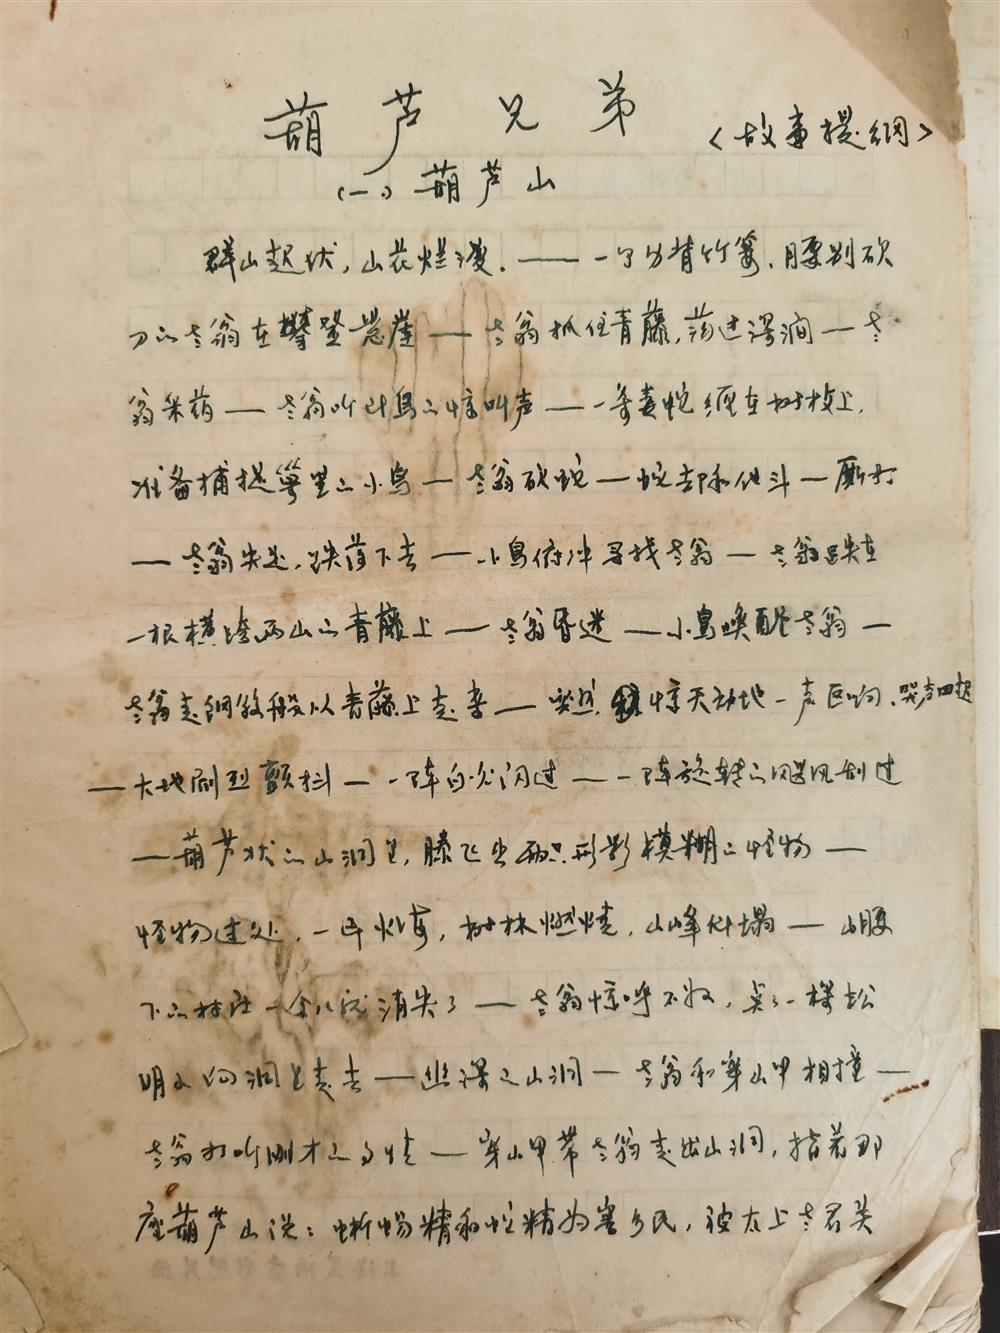 葫芦兄弟
<故事提纲>
(一) 葫芦山
群山起伏，山花烂漫。——一个身背竹篓、腰别砍
刀的老翁在攀登悬崖——老翁抓住青藤，荡过深涧——老
翁采药——老翁听到鸟的惊叫声——一条毒蛇缠在树枝上，
准备捕捉窝里的小鸟——老翁砍蛇——蛇却和他斗——厮打
——老翁失足，跌落下去——小鸟俯冲寻找老翁——老翁跌在
一根横跨两山的青藤上——老翁昏迷——小鸟唤醒老翁——
老翁走钢丝般从青藤上走来——突然，惊天动地一声巨响，哭声四起
——大地剧烈颤抖——一阵白光闪过——一阵旋转的飓风刮过
——葫芦状的山洞里，腾飞出两只形影模糊的怪物——
怪物过处，一片火海，树林燃烧，山峰倒塌——山腰
下的村庄一会儿就消失了——老翁惊呼不好，点了一根松
明又向洞里走去——幽深的山洞——老翁和穿山甲相撞——
老翁打听刚才的事情——穿山甲带老翁走出山洞，指着那
座葫芦山说：蜥蜴精和蛇精为害乡民，被太上老君关